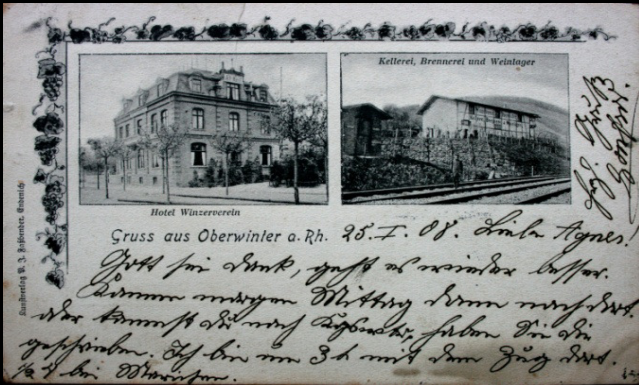 Kellerei, Brennerei und Weinlager
Hotel Winzerverein
Gruss aus Oberwinter a. Rh. 25. I. 08. Liebe Agnes!
Gott sei dank, geht es wieder besser.
Kommen morgen Mittag dann nach dort.
oder kommst du nach haben Sie die
geschrieben. Ich bin um 3 h mit dem Zug dort.
bei
Gruß
Kunstverlag P. J. Faßbender, Endenich